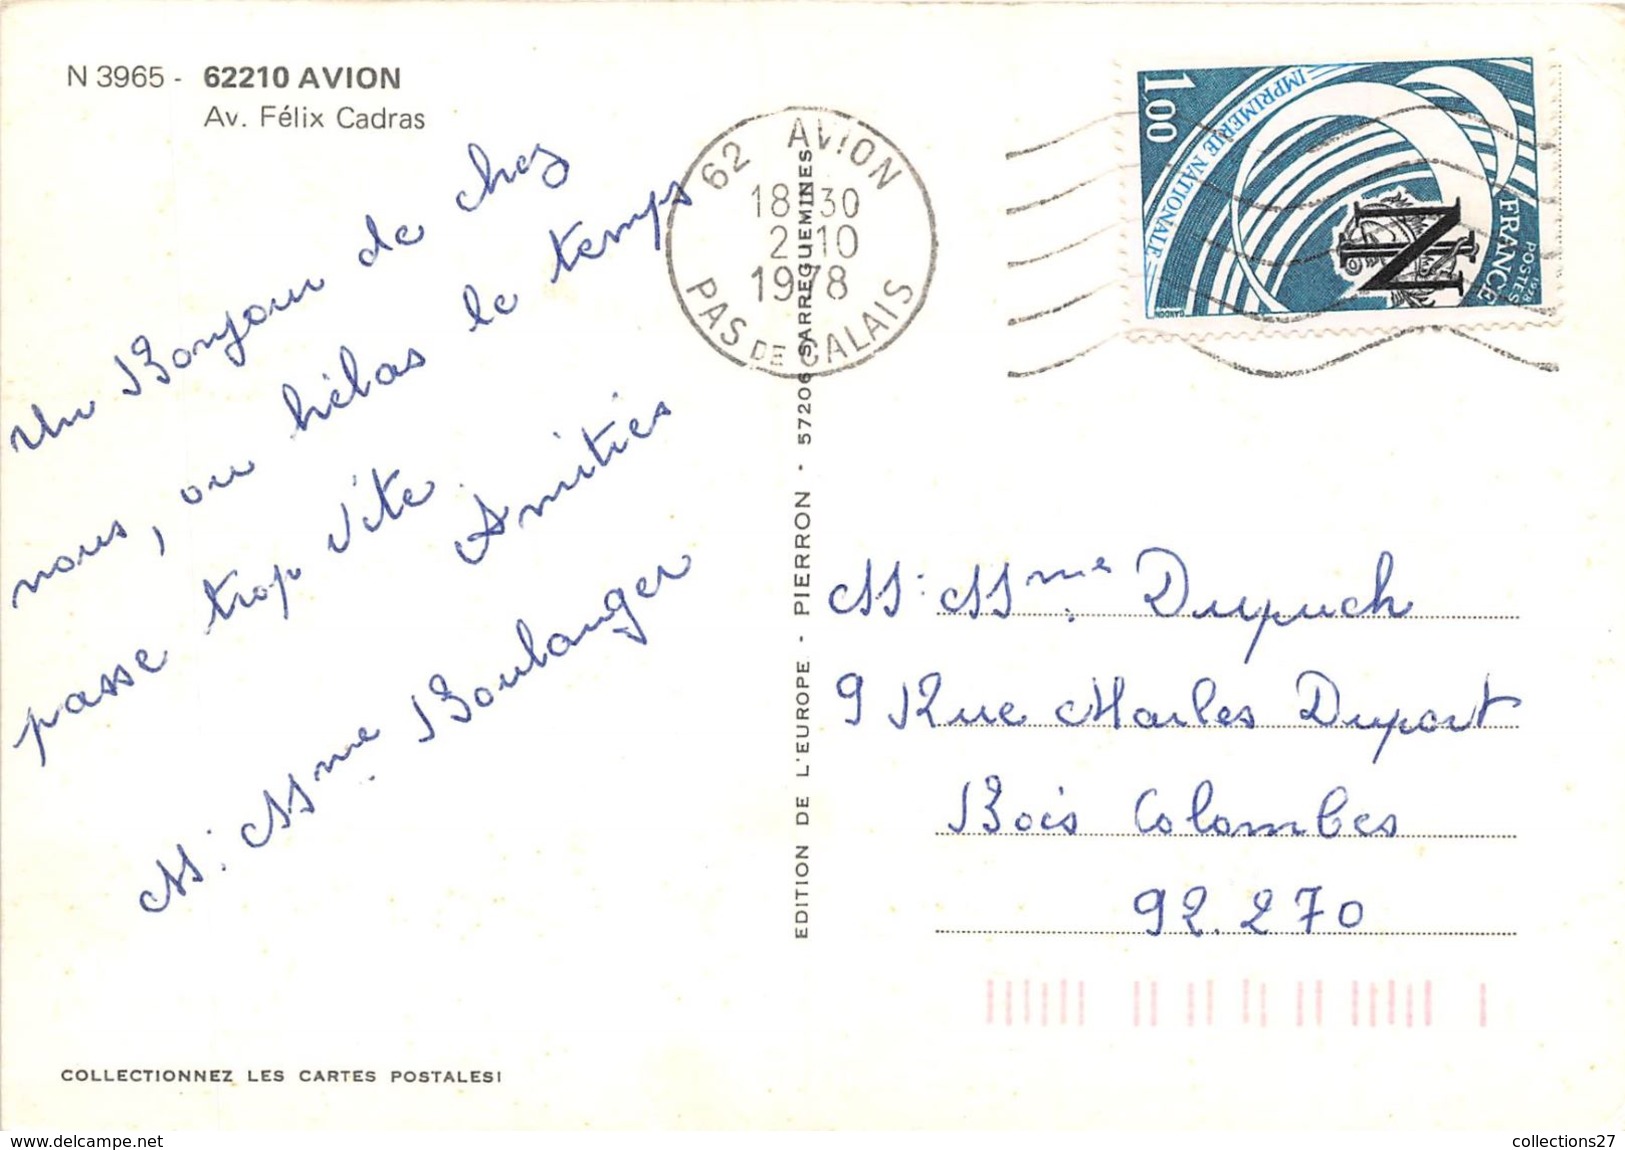 N 3965 - 62210 AVION
Av. Félix Cadras
Un Bonjour de chez
nous, ou hélas le temps
passe trop vite.
Amitiés
M. Mme Boulanger
62 AVION
18-30
2-10
1978
PAS DE CALAIS
1,00
IMPRIMERIE NATIONALE
FRANCE
POSTES
1978
GANDON
N
EDITION DE L'EUROPE - PIERRON - 57206 SARREGUEMINES
M. Mme Dupuch
9 Rue Charles Duport
Bois Colombes
92.270
COLLECTIONNEZ LES CARTES POSTALES!
www.delcampe.net
collections27